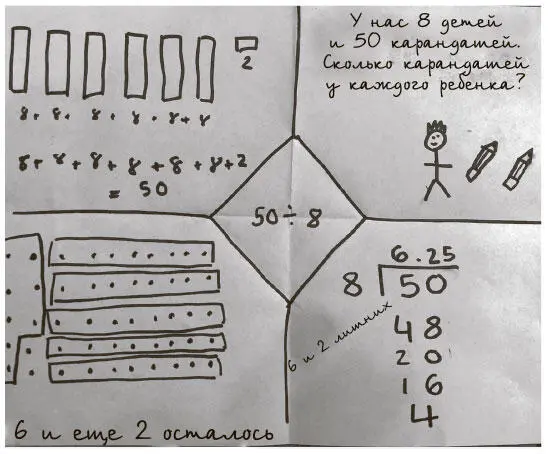 2
8+ 8+ 8+ 8+ 8+ 8
8+ 8+ 8+ 8+ 8+ 8+2
= 50
У нас 8 детей
и 50 карандатей.
Сколько карандатей
у каждого ребенка?
50÷8
6 и еще 2 осталось
6.25
8 50
6 и 2 литних
48
20
16
4